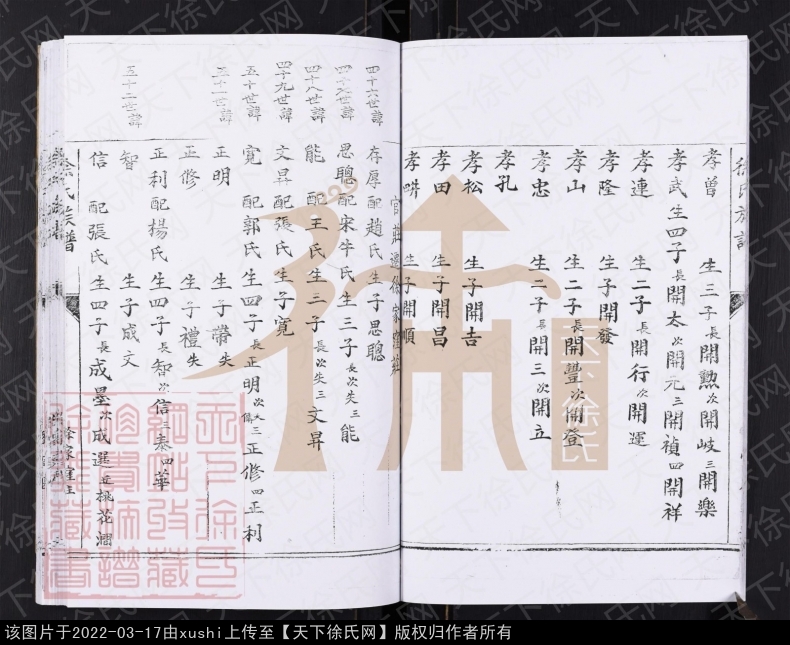 徐氏族譜
孝曽 生三子長開勲次開岐三開樂
孝武生四子長開太次開元三開禎四開祥
孝連 生二子長開行次開運
孝隆 生子開發
孝山 生二子長開豐次開登
孝忠 生二子長開三次開立
孝孔
孝松 生子開吉
孝田 生子開昌
生子開順
四十六世諱 存厚配趙氏生子思聰
思聰配宋牛氏生三子長次失三能
四十八世諱 能 配王氏生三子長次失三文昇
四十九世諱 文昇配張氏生子寛
五十世諱 寛 配郭氏生四子長正明次三正修四正利
五十一世諱 正明 生子帶失
正修 生子禮失
正利配楊氏生四子長智次信三泰四華
五十二世諱 智 生子成文
信 配張氏生四子長成墨次成選
徐氏族譜
天下徐氏
天下徐氏网
该图片于2022-03-17由xushi上传至【天下徐氏网】版权归作者所有